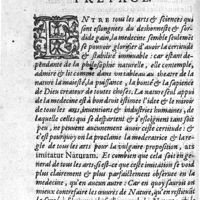 PREFACE
ENTRE tous les arts & sciences qui
sont eslongnees du deshonneste & sor-
dide gain, la medecine semble seulemēt
se pouvoir glorifier d'avoir la certitude
& stabilité immuable : car estant de-
pendante de la philosophie naturelle, elle contemple,
admire & lit comme dans un tableau au theatre de la
nature la maiesté, la puissance, la bonté & la sapience
de Dieu createur de toutes choses. La nature seul appuy
de la medecine est à bon droit estimee l'idee & le miroir
de tous les arts, inventions & industries humaines, de
laquelle celles qui se departent & s'eslongnent tāt soit
peu, on iuge qu'elles n'ont point de certitude: &
c'est pourquoy on a proclamé la moderatrice & la regle
de tous les arts pour la vulgaire proposition, ars
imitatur Naturam. Et combien que cela soit en general
de tous les arts, si est-ce que ceste imitation se void
plus clairement & plus parfaictement observee en la
medecine, qu'en aucun autre: Car en quoy sçauroit on
mieux contrefaire les œuvres de Nature, qu'en